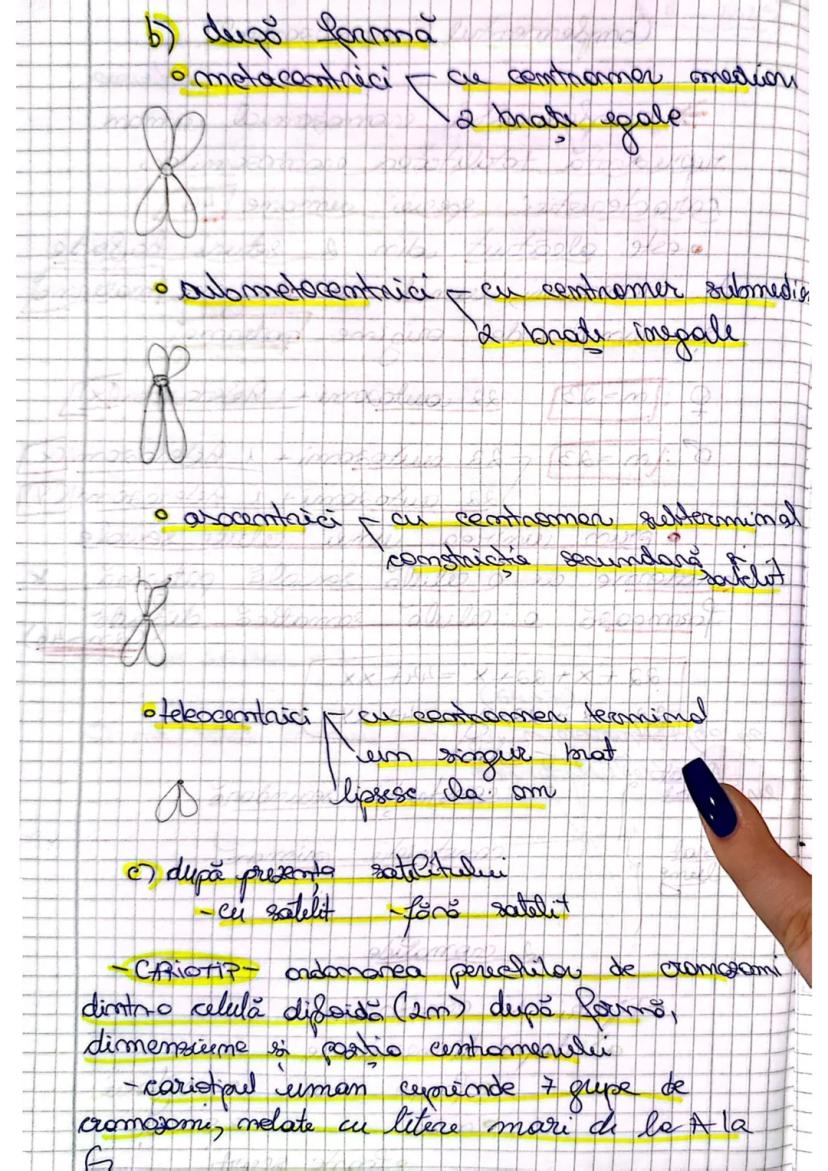 b) după formă
• metacentrici - cu centromer median
2 brațe egale
• submetacentrici - cu centromer submedia
2 brațe inegale
• acocentrici - cu centromer subterminal
constricție secundară și
satelit
• telocentrici - cu centromer terminal
un singur brat
lipsesc la om
c) după prezența satelitului
- cu satelit - fără satelit
- CARIOTIP - ordonarea perechilor de cromozomi
dintr-o celulă diploidă (2n) după formă,
dimensiune și poziția centromerului
- cariotipul uman cuprinde 7 grupe de
cromozomi, notate cu litere mari de la A la
G